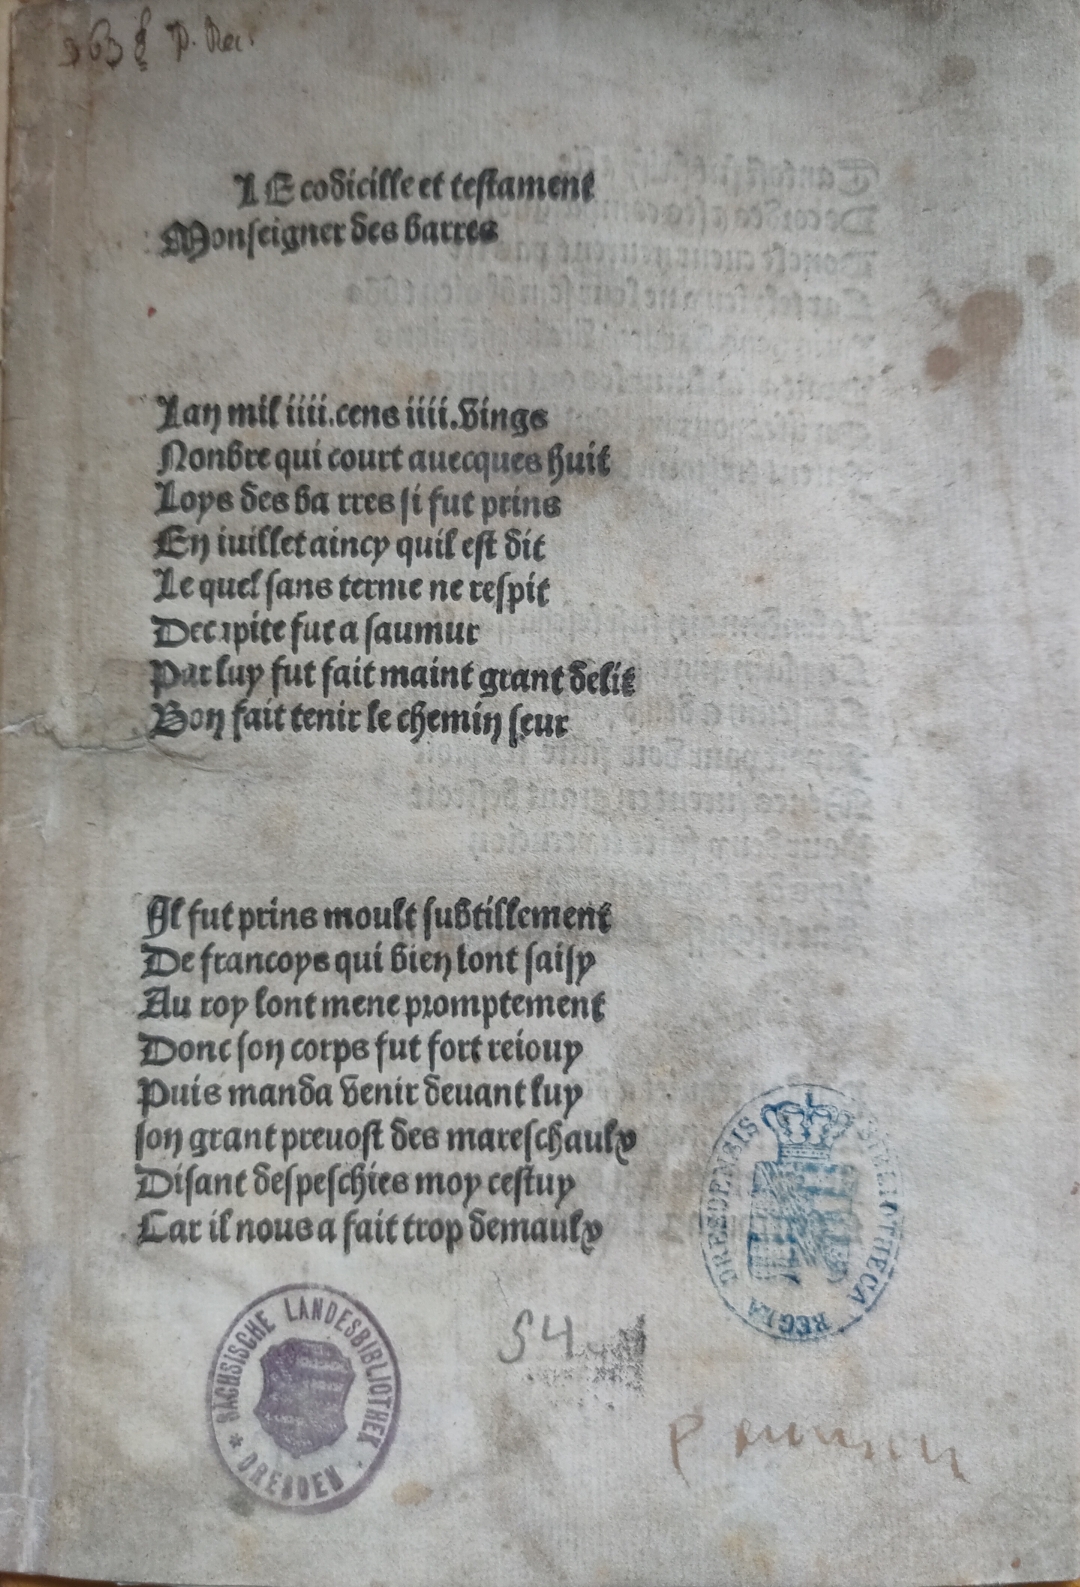 LE codicille et testament
Monseigner des barres
Lan mil iiii.cens iiii.vings
Nonbre qui court auecques huit
Loys des ba rres si fut prins
En iuillet aincy quil est dit
Le quel sans terme ne respit
Decapite fut a saumur
Par luy fut fait maint grant delit
Bon fait tenir le chemin seur
Il fut prins moult subtillement
De francoys qui bien lont saisy
Au roy lont mene promptement
Donc son corps fut fort reiouy
Puis manda venir deuant luy
son grant preuost des mareschaulx
Disant despeschies moy cestuy
Car il nous a fait trop demaulx
REGIA BIBLIOTHECA DRESDENSIS
SÄCHSISCHE LANDESBIBLIOTHEK
* DRESDEN *
54